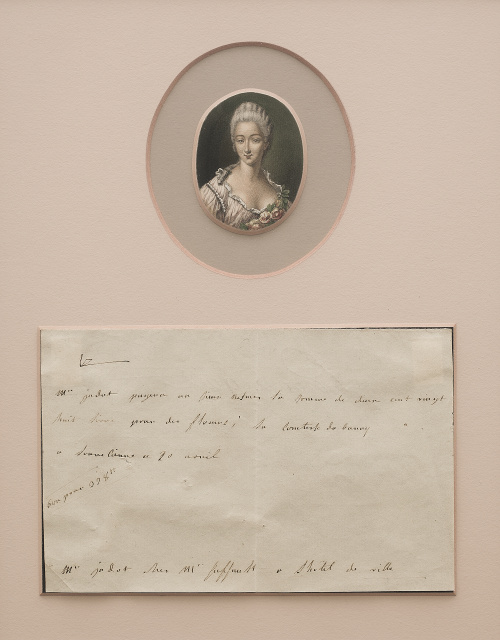 Mr jodot payera au sieur
la somme de deux cent vingt
huit livres pour des plumes; la comtesse du barry
a Louveciennes ce 20 avril
bon pour 228 ll
Mr jodot chez Mr Buffault a l'hotel de ville